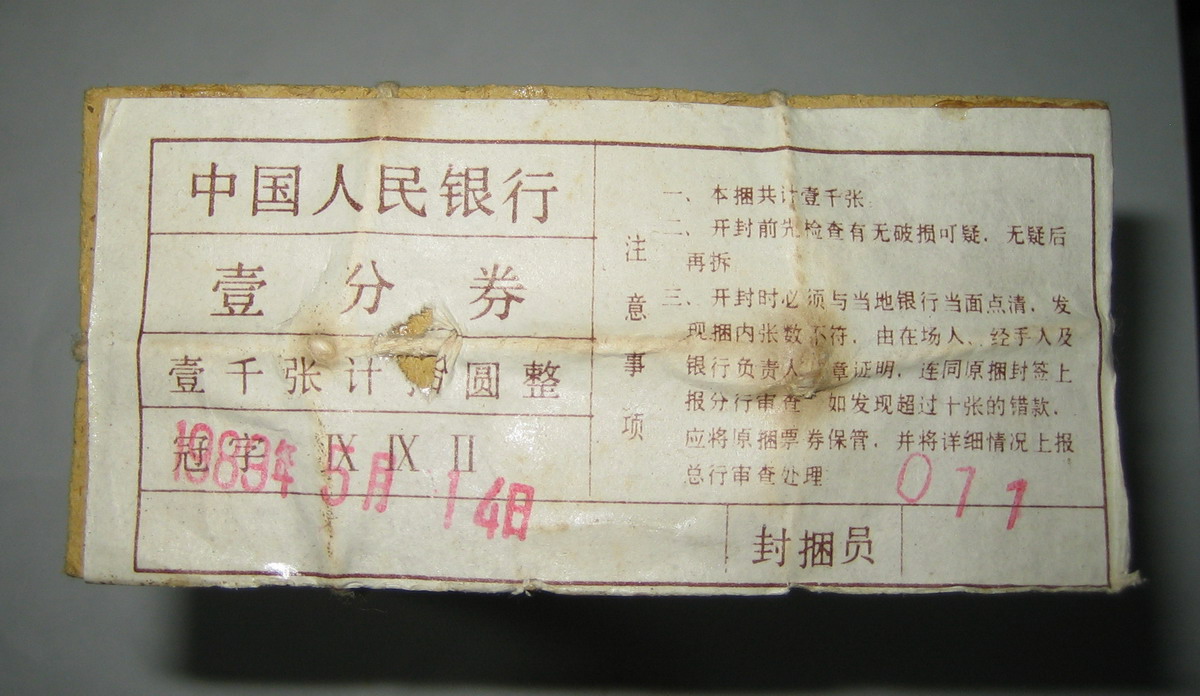 中国人民银行
壹分券
壹千张计拾圆整
冠字 IX IX II
1983年5月14日
注意事项
一、本捆共计壹千张。
二、开封前先检查有无破损可疑，无疑后
再拆
三、开封时必须与当地银行当面点清，发
现捆内张数不符，由在场人、经手人及
银行负责人 章证明，连同原捆封签上
报分行审查 如发现超过十张的错款，
应将原捆票券保管，并将详细情况上报
总行审查处理
071
封捆员